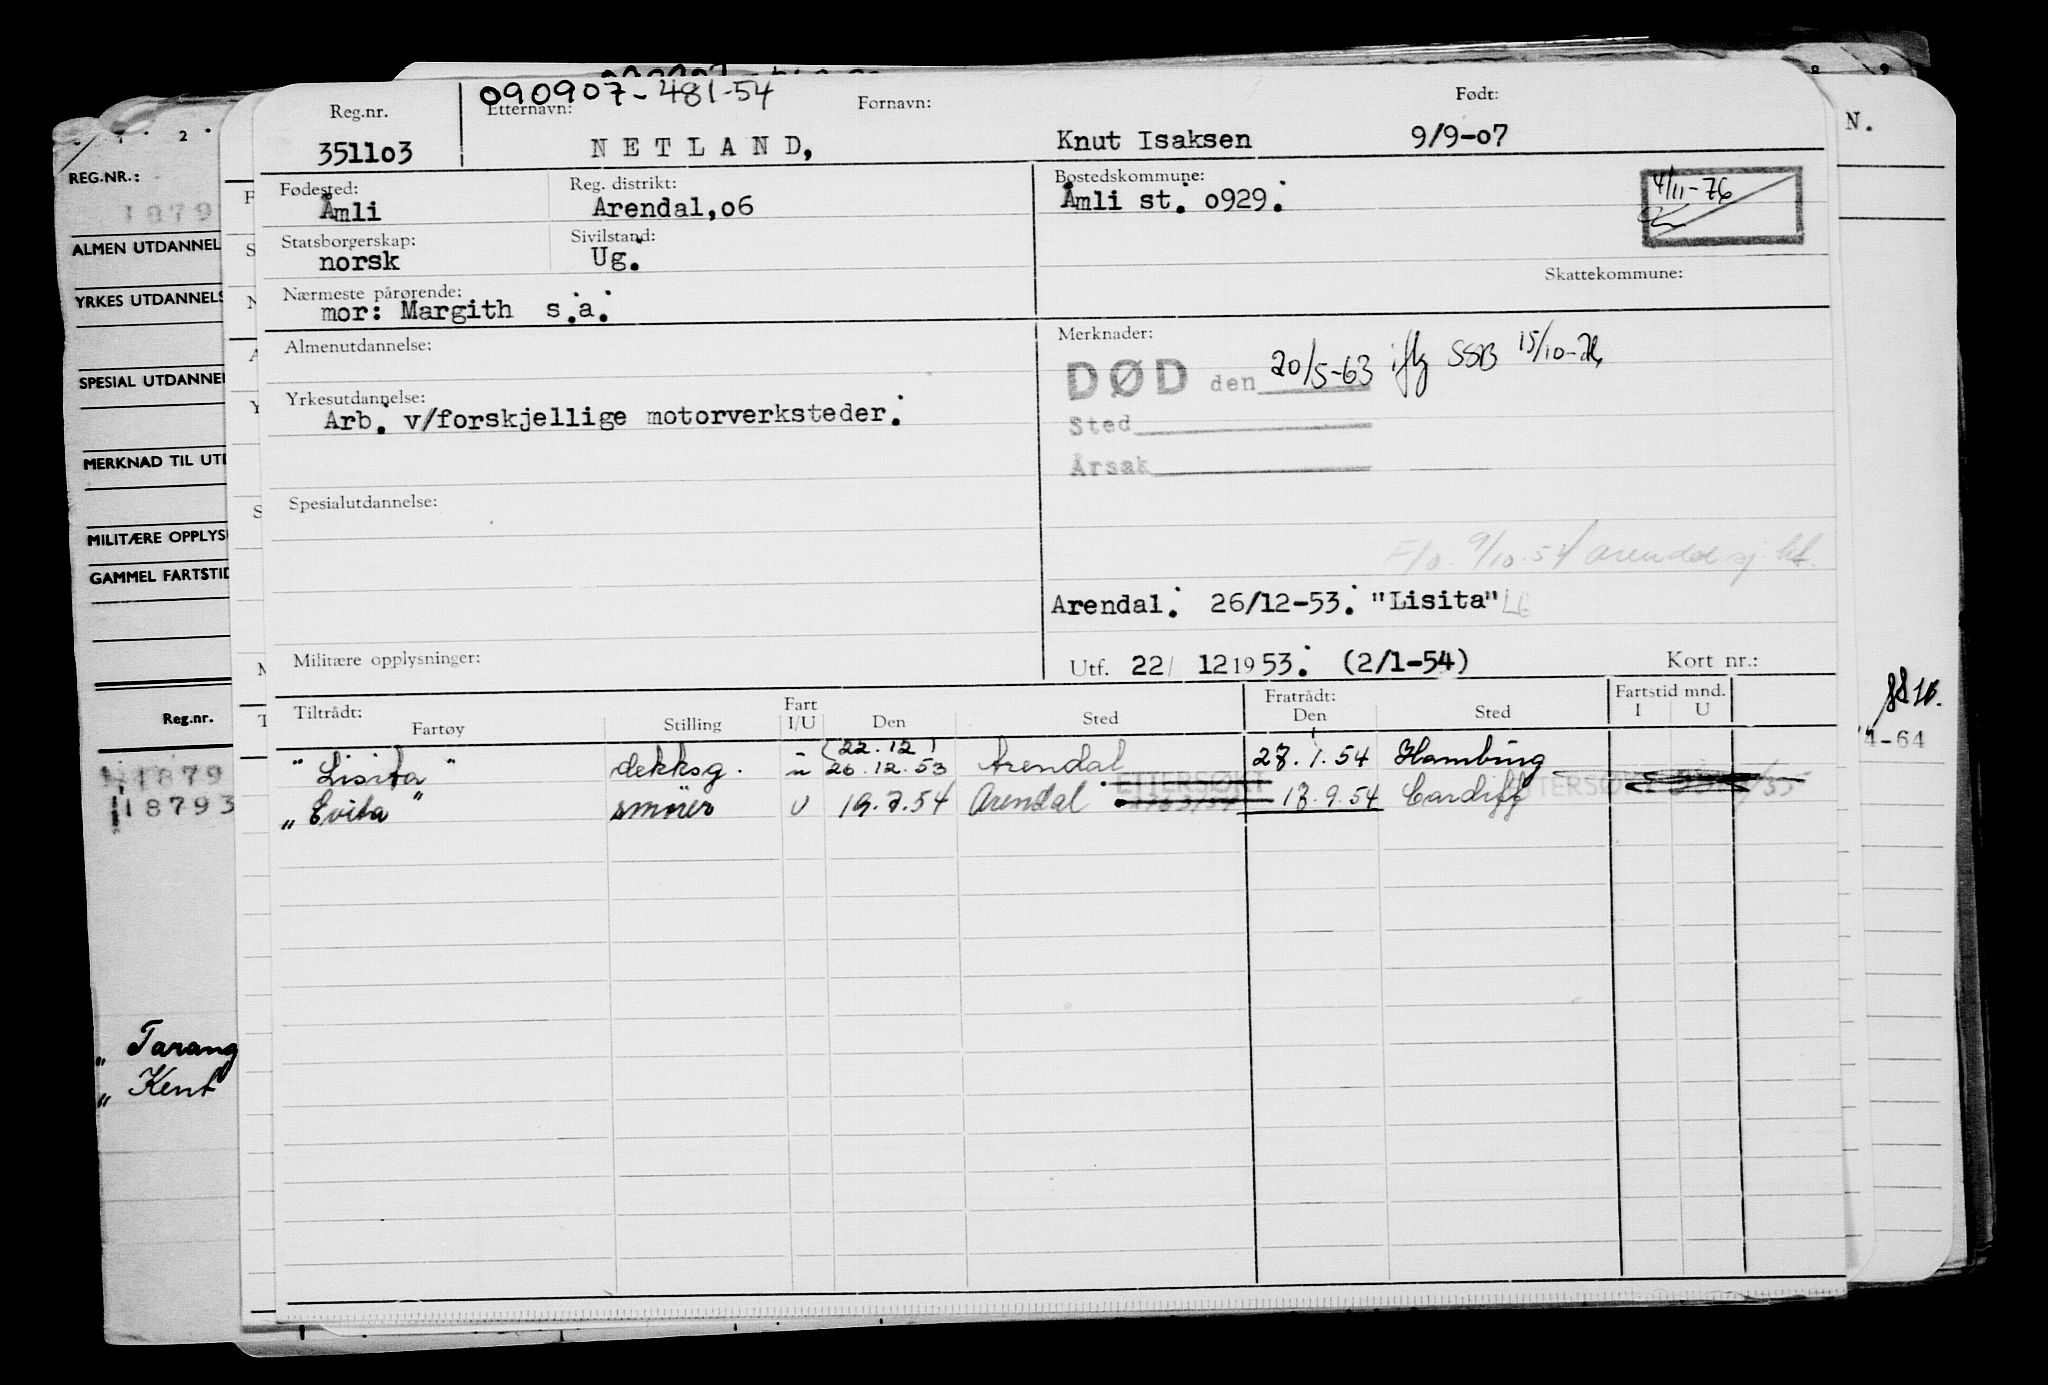 090907-481-54
Reg.nr. Etternavn: Fornavn: Født:
351103 NETLAND, Knut Isaksen 9/9-07
Fødested: Reg. distrikt: Bostedskommune:
Åmli Arendal,06 Åmli st. 0929.
4/11-76
Statsborgerskap: Sivilstand:
norsk Ug.
Skattekommune:
Nærmeste pårørende:
mor: Margith s.a.
Almenutdannelse:
Merknader:
DØD den 20/5-63 iflg SSB 15/10-76
Sted
Årsak
Yrkesutdannelse:
Arb. v/forskjellige motorverksteder.
Spesialutdannelse:
F/o. 9/10.54 Arendal sj.
Arendal. 26/12-53. "Lisita"
Militære opplysninger:
Utf. 22/ 12 1953. (2/1-54) Kort nr.:
Tiltrådt: Fart Fratrådt: Fartstid mnd.
Fartøy Stilling I/U Den Sted Den Sted I U
(22.12)
"Lisita" dekksg. u 26.12.53 Arendal 28.1.54 Hamburg
ETTERSØKT
"Evita" smører U 19.7.54 Arendal 18.9.54 Cardiff
1 2
REG.NR.:
1879
ALMEN UTDANNEL
YRKES UTDANNELS
SPESIAL UTDANNEL
MERKNAD TIL UTD
MILITÆRE OPPLYS
GAMMEL FARTSTID
Reg.nr.
1879
18793
" Tarang
" Kent
8 9
N.
4-64